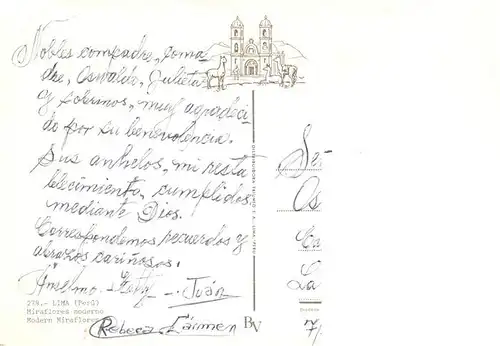 Nobles compadre, coma-
dre, Oswaldo, Julieta
y sobrinos, muy agradeci-
do por su benevolencia.
Sus anhelos, mi resta
blecimiento, cumplidos
mediante Dios.
Correspondemos recuerdos y
abrazos cariñosos.
Anselmo.
Juán
Rebeca Cármen
278.- LIMA (Perú)
Miraflores moderno
Modern Miraflores
BV
Os
La
7/